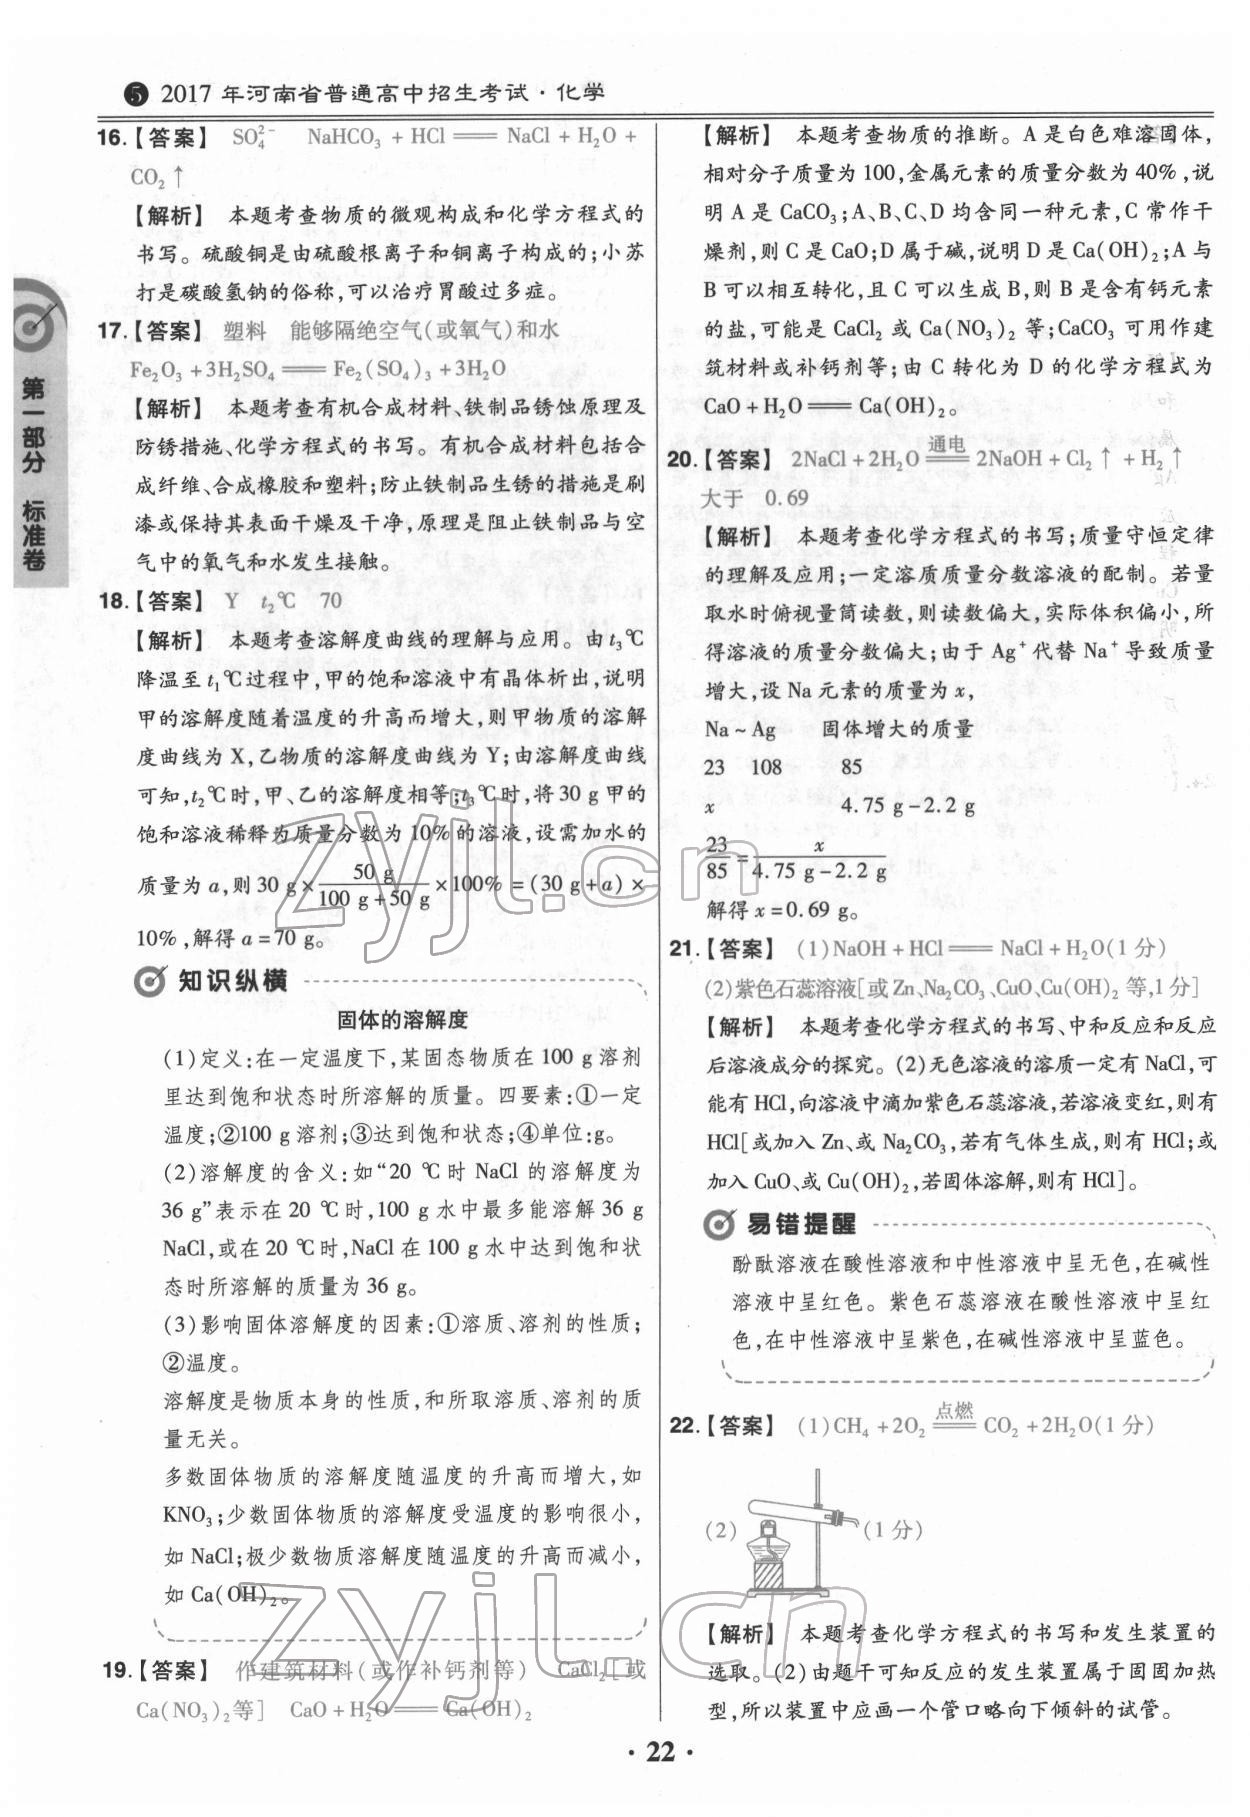 ❺ 2017 年河南省普通高中招生考试·化学
第一部分 标准卷
16.【答案】 SO₄²⁻ NaHCO₃ + HCl ═══ NaCl + H₂O +
CO₂↑
【解析】 本题考查物质的微观构成和化学方程式的
书写。硫酸铜是由硫酸根离子和铜离子构成的;小苏
打是碳酸氢钠的俗称,可以治疗胃酸过多症。
17.【答案】 塑料 能够隔绝空气(或氧气)和水
Fe₂O₃ +3H₂SO₄ ═══ Fe₂(SO₄)₃ +3H₂O
【解析】 本题考查有机合成材料、铁制品锈蚀原理及
防锈措施、化学方程式的书写。有机合成材料包括合
成纤维、合成橡胶和塑料;防止铁制品生锈的措施是刷
漆或保持其表面干燥及干净,原理是阻止铁制品与空
气中的氧气和水发生接触。
18.【答案】 Y t₂℃ 70
【解析】 本题考查溶解度曲线的理解与应用。由 t₃℃
降温至 t₁℃过程中,甲的饱和溶液中有晶体析出,说明
甲的溶解度随着温度的升高而增大,则甲物质的溶解
度曲线为 X,乙物质的溶解度曲线为 Y;由溶解度曲线
可知,t₂℃时,甲、乙的溶解度相等;t₃℃时,将 30 g 甲的
饱和溶液稀释为质量分数为 10%的溶液,设需加水的
质量为 a,则 30 g× 50 g/(100 g+50 g) ×100% =(30 g+a)×
10%,解得 a=70 g。
知识纵横
固体的溶解度
(1)定义:在一定温度下,某固态物质在 100 g 溶剂
里达到饱和状态时所溶解的质量。四要素:①一定
温度;②100 g 溶剂;③达到饱和状态;④单位:g。
(2)溶解度的含义:如“20 ℃时 NaCl 的溶解度为
36 g”表示在 20 ℃时,100 g 水中最多能溶解 36 g
NaCl,或在 20 ℃时,NaCl 在 100 g 水中达到饱和状
态时所溶解的质量为 36 g。
(3)影响固体溶解度的因素:①溶质、溶剂的性质;
②温度。
溶解度是物质本身的性质,和所取溶质、溶剂的质
量无关。
多数固体物质的溶解度随温度的升高而增大,如
KNO₃;少数固体物质的溶解度受温度的影响很小,
如 NaCl;极少数物质溶解度随温度的升高而减小,
如 Ca(OH)₂。
19.【答案】 作建筑材料(或作补钙剂等) CaCl₂[或
Ca(NO₃)₂等] CaO+H₂O ═══ Ca(OH)₂
【解析】 本题考查物质的推断。A 是白色难溶固体,
相对分子质量为 100,金属元素的质量分数为 40%,说
明 A 是 CaCO₃;A、B、C、D 均含同一种元素,C 常作干
燥剂,则 C 是 CaO;D 属于碱,说明 D 是 Ca(OH)₂;A 与
B 可以相互转化,且 C 可以生成 B,则 B 是含有钙元素
的盐,可能是 CaCl₂ 或 Ca(NO₃)₂ 等;CaCO₃ 可用作建
筑材料或补钙剂等;由 C 转化为 D 的化学方程式为
CaO+H₂O ═══ Ca(OH)₂。
20.【答案】 2NaCl+2H₂O ═通电═ 2NaOH+Cl₂↑ +H₂↑
大于 0.69
【解析】 本题考查化学方程式的书写;质量守恒定律
的理解及应用;一定溶质质量分数溶液的配制。若量
取水时俯视量筒读数,则读数偏大,实际体积偏小,所
得溶液的质量分数偏大;由于 Ag⁺代替 Na⁺导致质量
增大,设 Na 元素的质量为 x,
Na ~ Ag 固体增大的质量
23 108 85
x 4.75 g-2.2 g
23/85 = x/(4.75 g-2.2 g)
解得 x=0.69 g。
21.【答案】 (1)NaOH+HCl ═══ NaCl+H₂O(1 分)
(2)紫色石蕊溶液[或 Zn、Na₂CO₃、CuO、Cu(OH)₂ 等,1 分]
【解析】 本题考查化学方程式的书写、中和反应和反应
后溶液成分的探究。(2)无色溶液的溶质一定有 NaCl,可
能有 HCl,向溶液中滴加紫色石蕊溶液,若溶液变红,则有
HCl[或加入 Zn、或 Na₂CO₃,若有气体生成,则有 HCl;或
加入 CuO、或 Cu(OH)₂,若固体溶解,则有 HCl]。
易错提醒
酚酞溶液在酸性溶液和中性溶液中呈无色,在碱性
溶液中呈红色。紫色石蕊溶液在酸性溶液中呈红
色,在中性溶液中呈紫色,在碱性溶液中呈蓝色。
22.【答案】 (1)CH₄+2O₂ ═点燃═ CO₂+2H₂O(1 分)
(2) (1 分)
【解析】 本题考查化学方程式的书写和发生装置的
选取。(2)由题干可知反应的发生装置属于固固加热
型,所以装置中应画一个管口略向下倾斜的试管。
· 22 ·
zyjl.cn
zyjl.cn